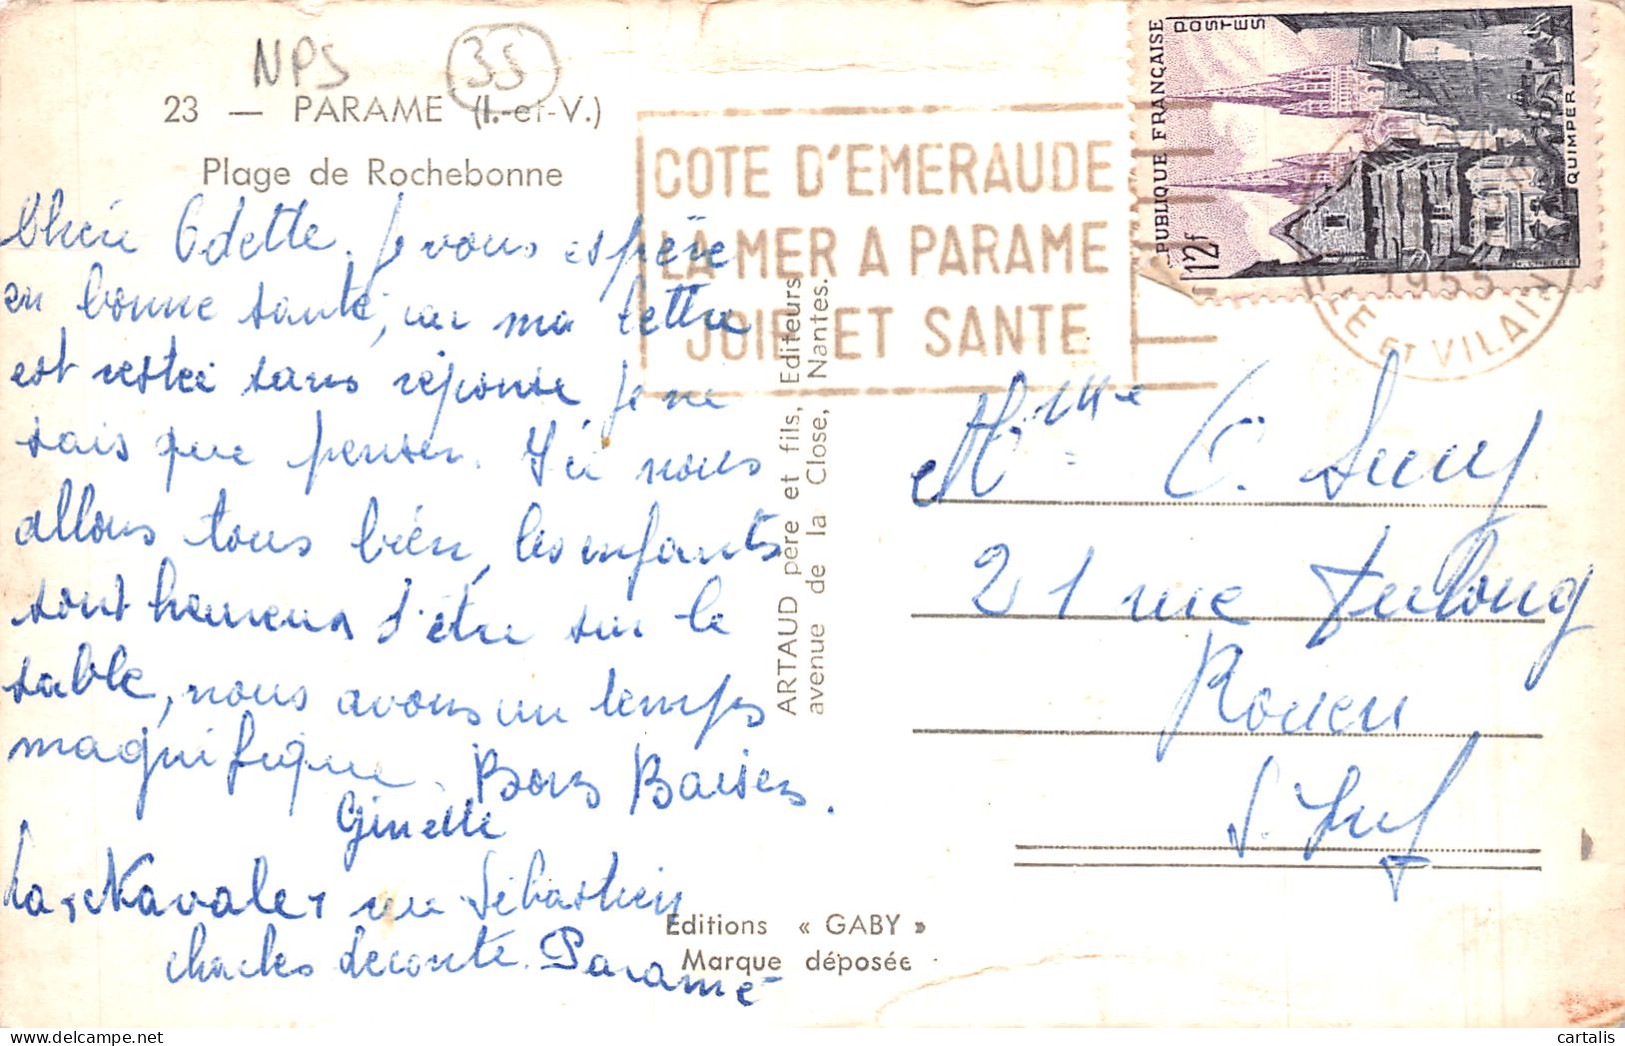 NPS
35
23 — PARAME (I.-et-V.)
Plage de Rochebonne
Chère Odette. Je vous espère
en bonne santé, car ma lettre
est restée sans réponse. Je ne
sais que penser. Ici nous
allons tous bien, les enfants
sont heureux d'être sur le
sable, nous avons un temps
magnifique. Bons Baisers.
Ginette
"La Navale" rue Sébastien
charles leconte. Paramé
ARTAUD père et fils, Editeurs
avenue de la Close, Nantes.
Editions « GABY »
Marque déposée
COTE D'EMERAUDE
LA MER A PARAME
JOIE ET SANTE
REPUBLIQUE FRANÇAISE
POSTES
12f
QUIMPER
1955
ILLE ET VILAINE
Mme C.
21 rue
Rouen
S. Inf